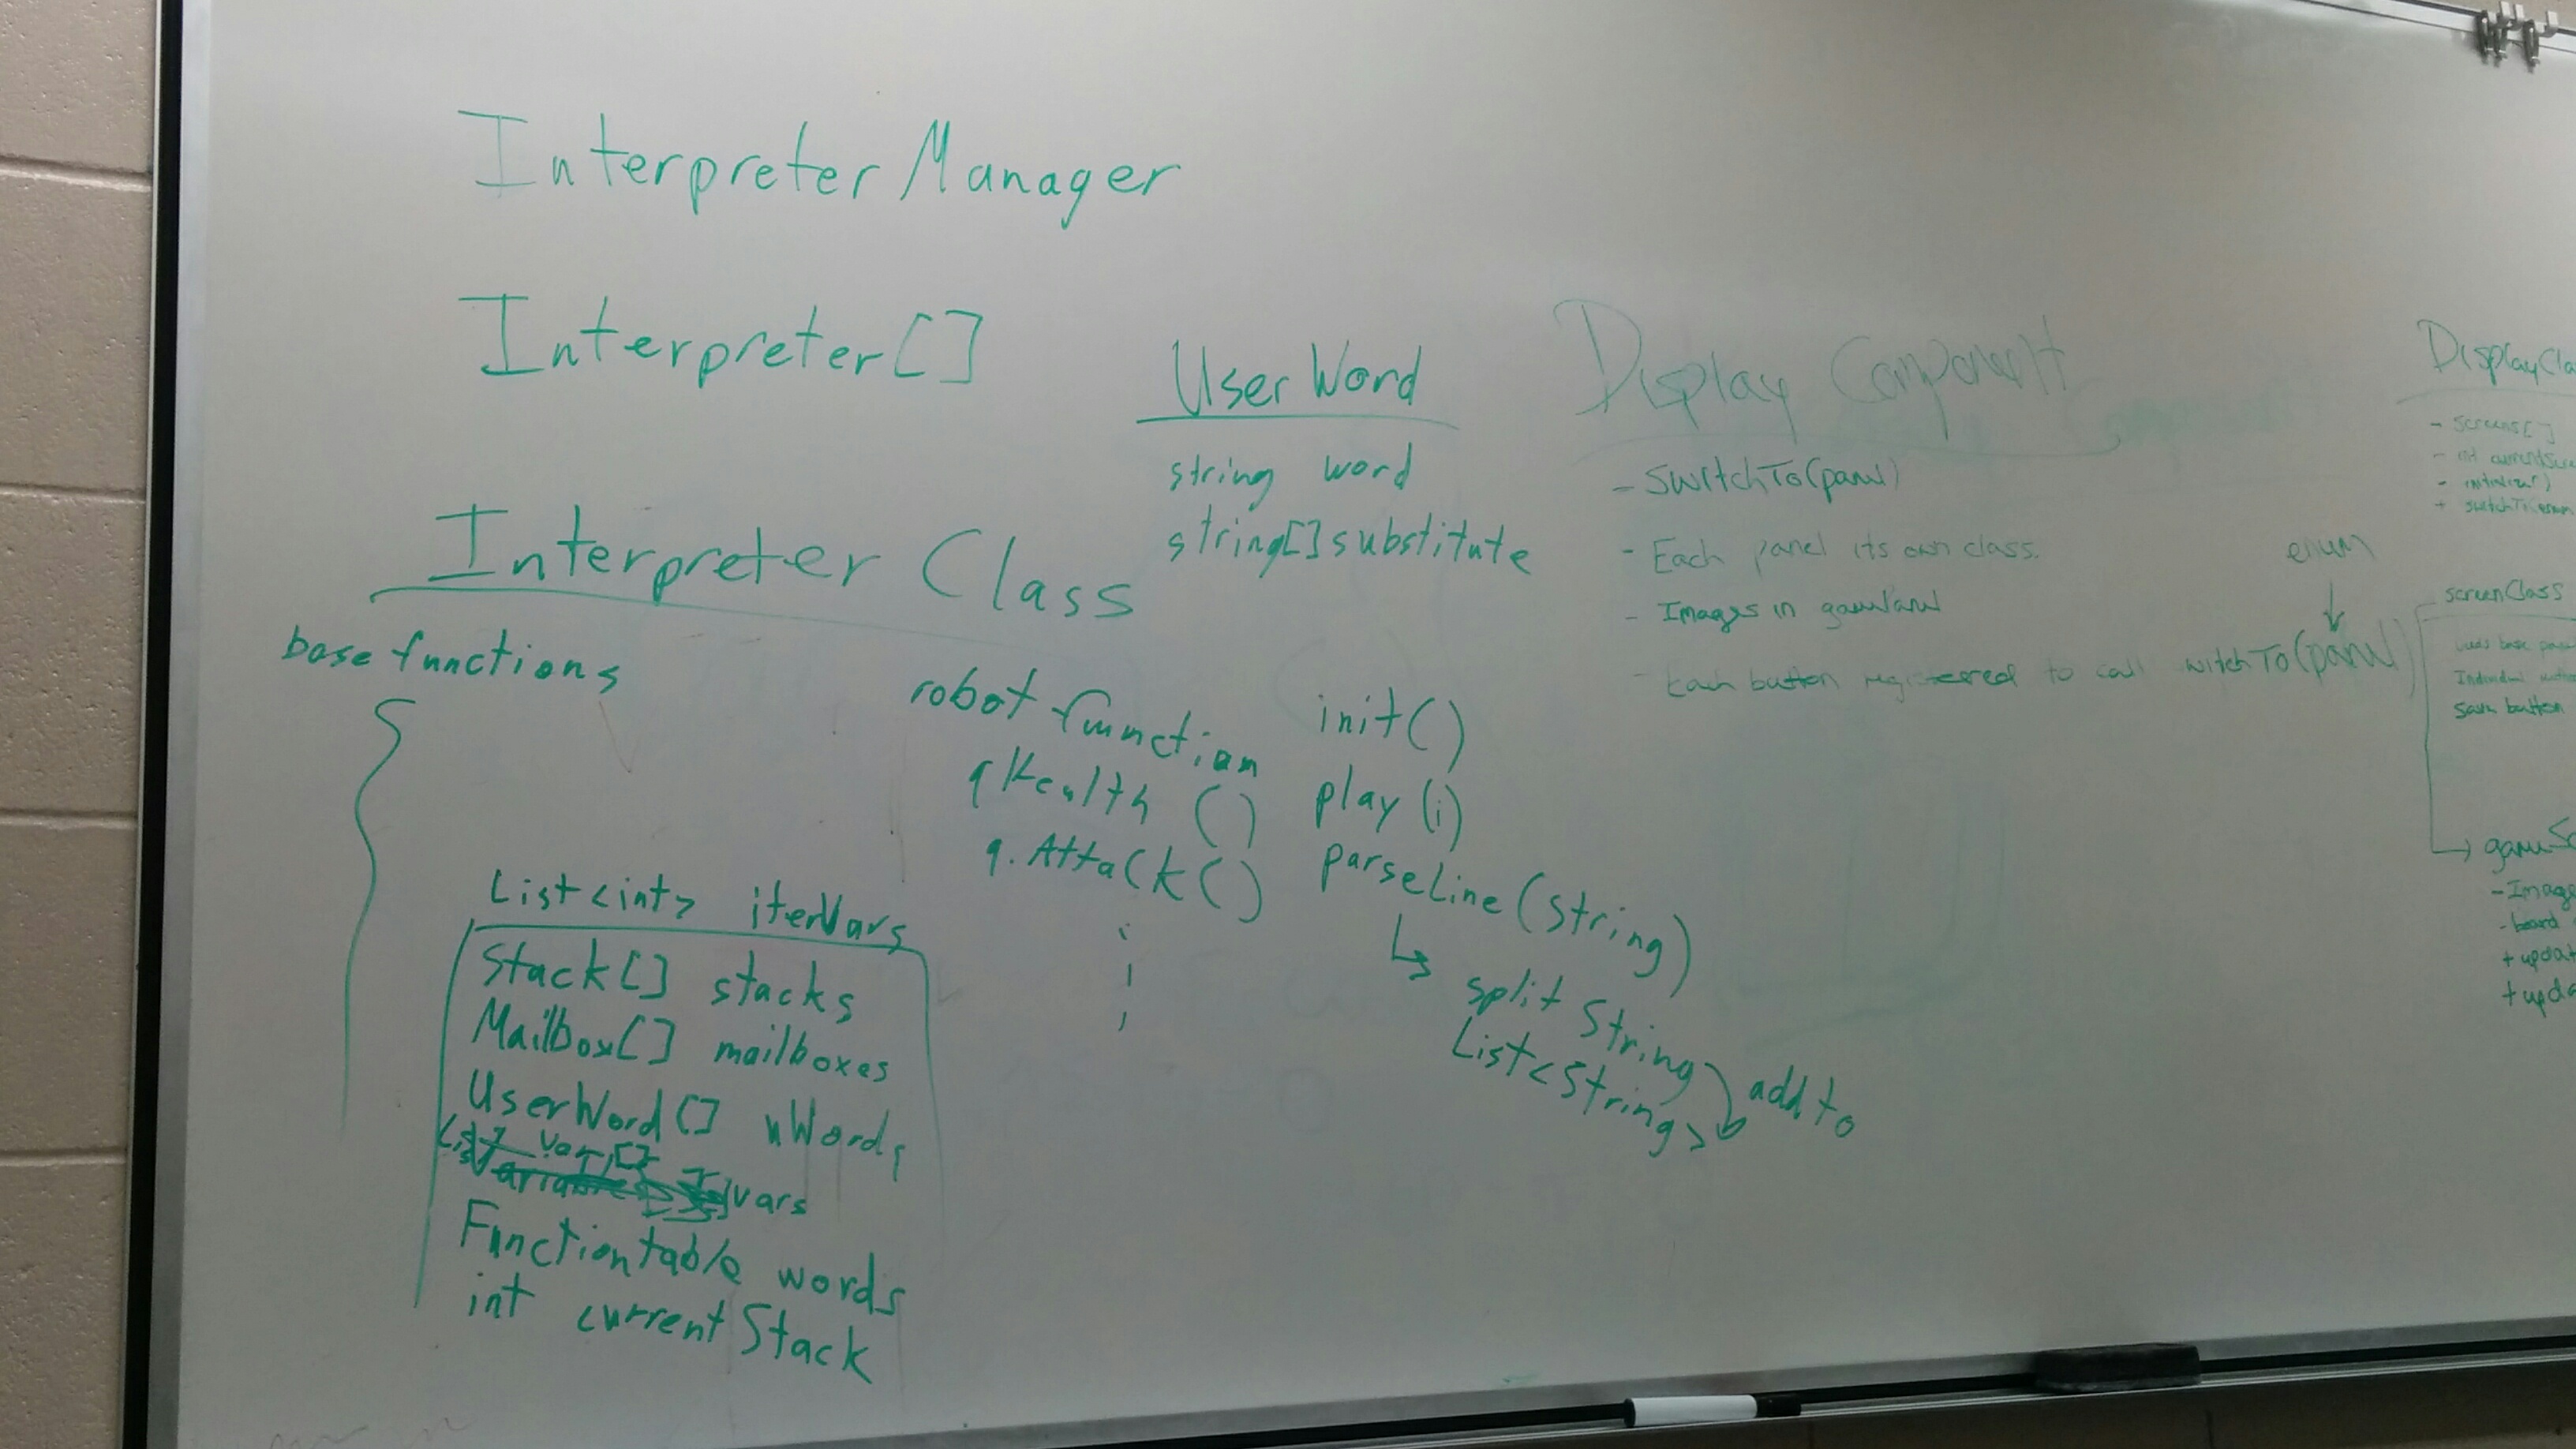 Interpreter Manager
Interpreter[]
Interpreter Class
base functions
List<int> iterVars
Stack[] stacks
Mailbox[] mailboxes
UserWord[] uWords
List vars
Functiontable words
int currentStack
UserWord
string word
string[] substitute
robot function
qHealth()
q.Attack()
init()
play(i)
parseLine(String)
split String
List<String>
add to
Display Component
- SwitchTo(panel)
- Each panel its own class.
- Images in
- Each button registered to call witchTo(panel)
enum
DisplayCla
- screens[]
- int currentScre
+ switchTo
screenClass
Individual
button
- Image
- board
+ updat
+ upda